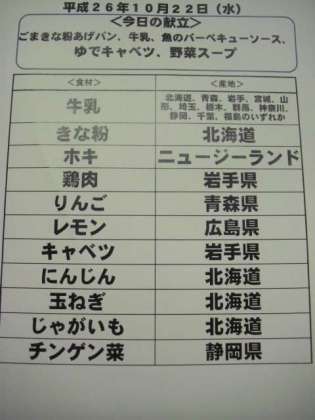 平成26年10月22日（水）
＜今日の献立＞
ごまきな粉あげパン、牛乳、魚のバーベキューソース、
ゆでキャベツ、野菜スープ
＜食材＞ ＜産地＞
牛乳 北海道、青森、岩手、宮城、山
形、埼玉、栃木、群馬、神奈川、
静岡、千葉、福島のいずれか
きな粉 北海道
ホキ ニュージーランド
鶏肉 岩手県
りんご 青森県
レモン 広島県
キャベツ 岩手県
にんじん 北海道
玉ねぎ 北海道
じゃがいも 北海道
チンゲン菜 静岡県